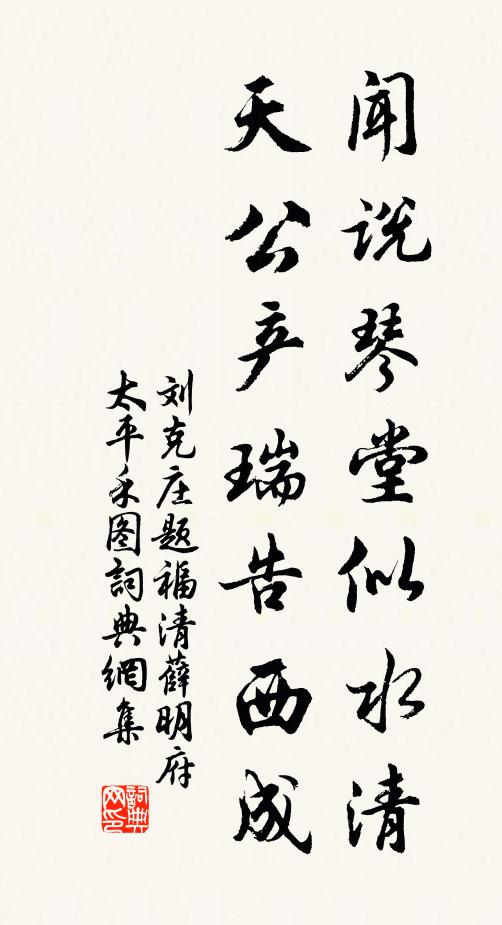 闻说琴堂似水清
天公产瑞告西成
刘克庄题福清薛明府
太平禾图詞典網集
詞典网印